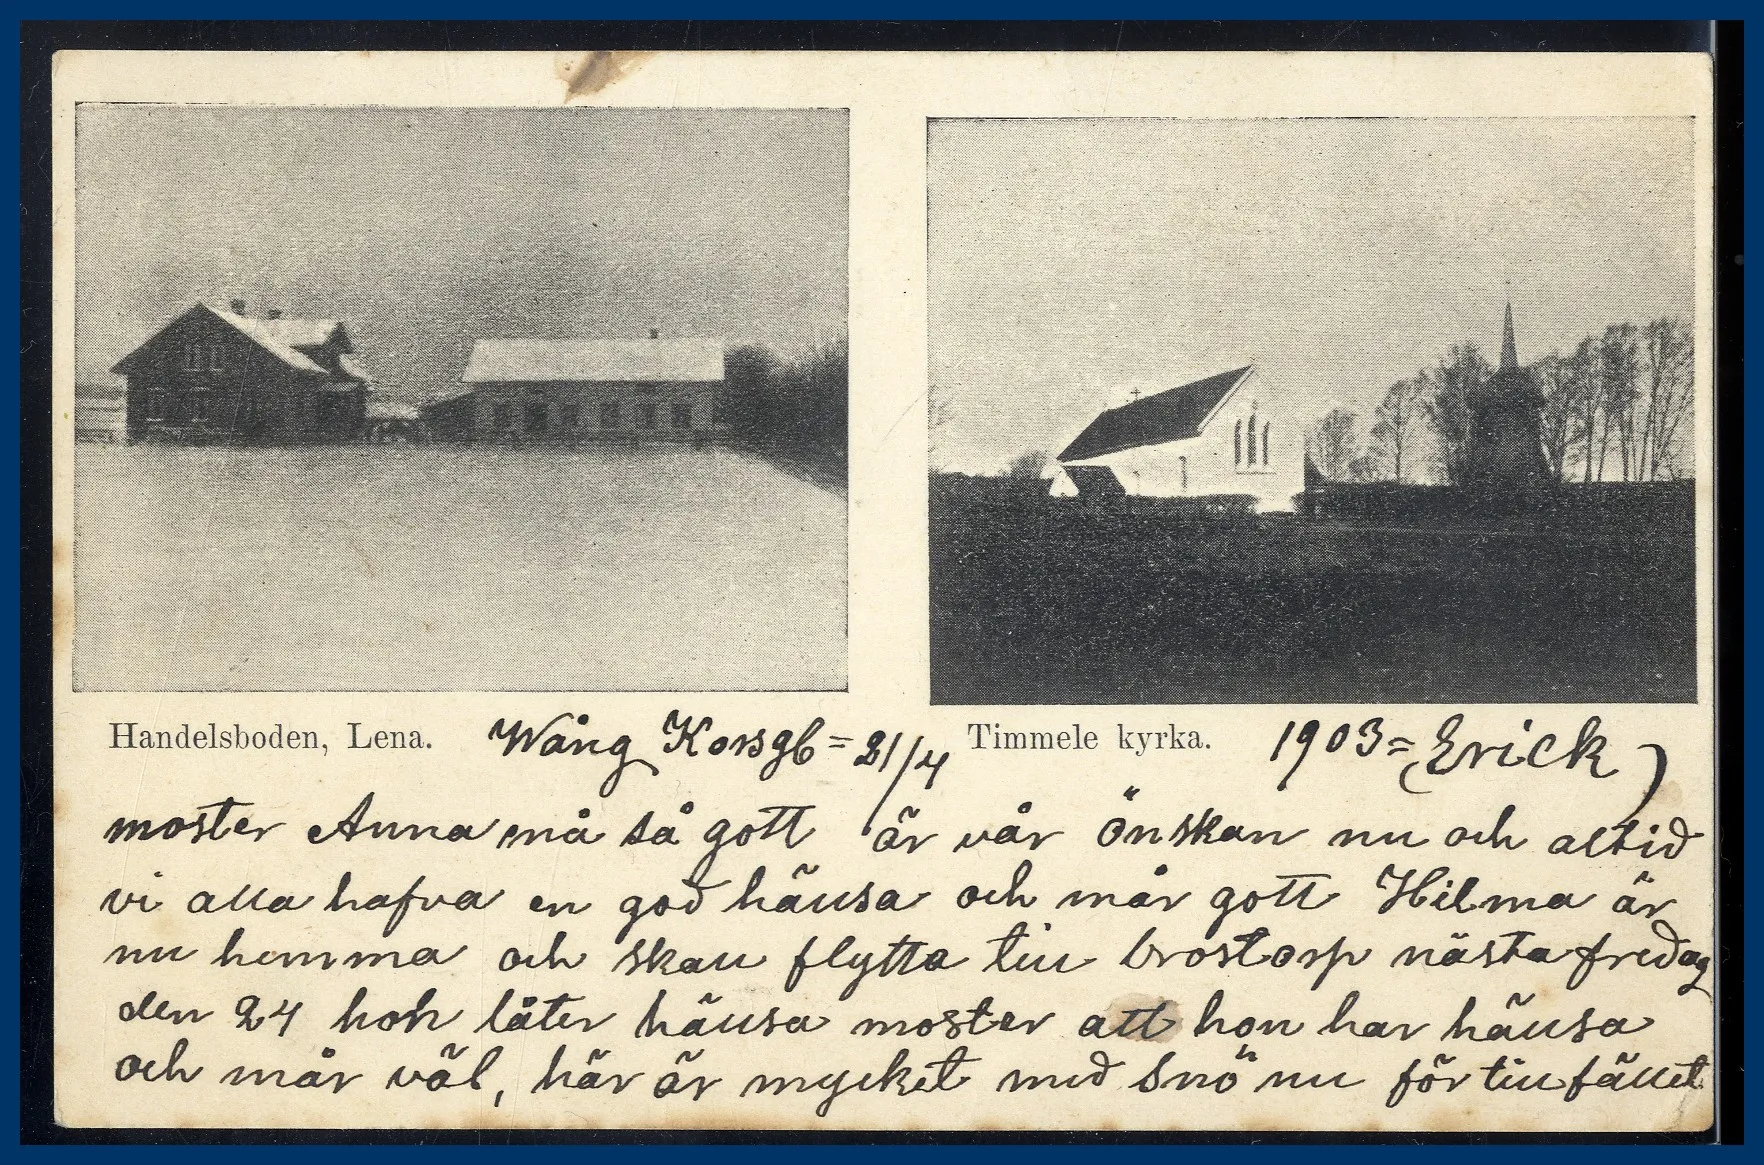 Handelsboden, Lena. Wång Korsgb = 21/4 Timmele kyrka. 1903 = (Erick)
moster Anna må så gott är vår önskan nu och altid
vi alla hafva en god hälsa och mår gott Hilma är
nu hemma och skall flytta till brostorp nästa fredag
den 24 hon låter hälsa moster att hon har hälsa
och mår väl, här är mycket med Snö nu för tillfället